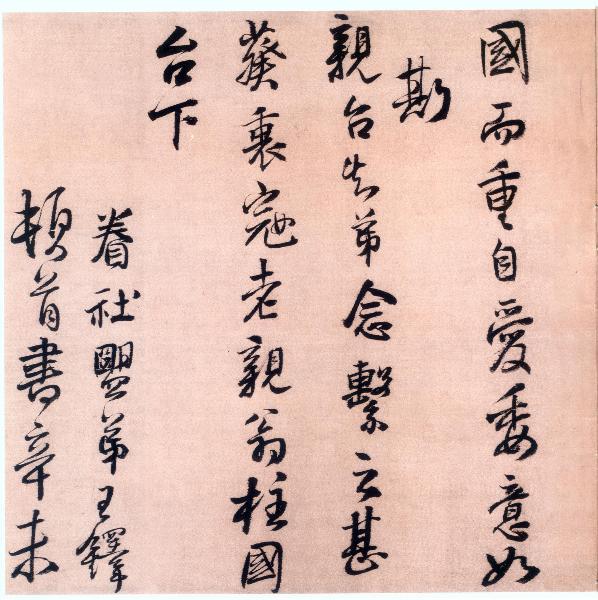 國而重自愛委意如
斯
親台失弟念繫云甚
葵衷寇老親翁柱國
台下
眷社盟弟王鐸
頓首書辛未